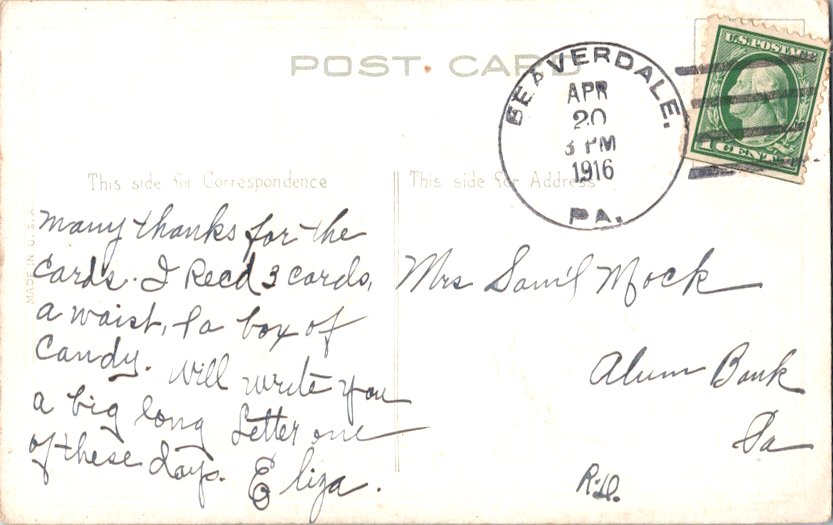 POST CARD
BEAVERDALE,
APR
20
3 PM
1916
PA.
U.S. POSTAGE
1 CENT 1
This side for Correspondence
This side for Address
MADE IN U.S.A.
Many thanks for the
Cards. I Recd 3 cards,
a waist, & a box of
Candy. Will write you
a big long Letter one
of these days. Eliza.
Mrs Saml Mock
Alum Bank
Pa
R.D.